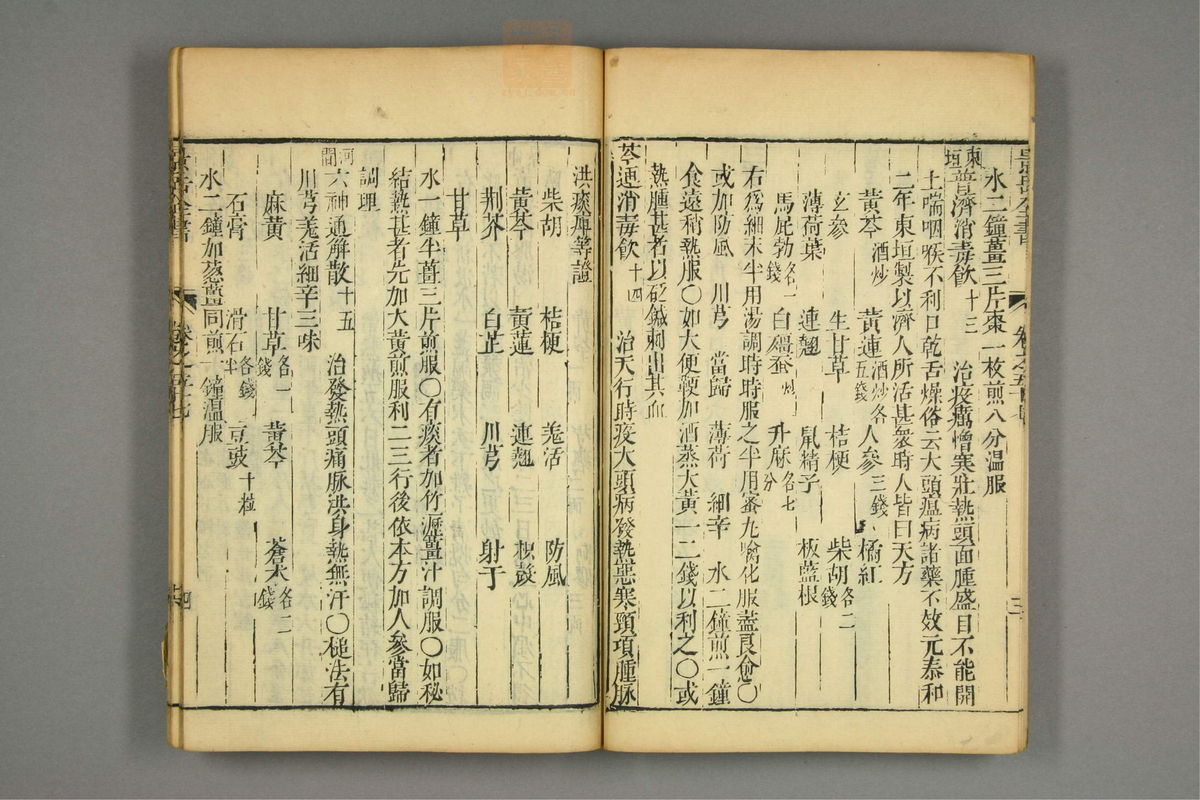 水二鐘薑三片棗一枚煎八分溫服
東垣普濟消毒飲十三 治疫癘憎寒壯熱頭面腫盛目不能開
上喘咽喉不利口乾舌燥俗云大頭瘟病諸藥不效元泰和
二年東垣製以濟人所活甚衆時人皆曰天方
黃芩酒炒 黃連酒炒各五錢 人參三錢 橘紅
玄參 生甘草 桔梗 柴胡各二錢
薄荷葉 連翹 鼠粘子 板藍根
馬屁勃各一錢 白殭蠶炒 升麻各七分
右爲細末半用湯調時時服之半用蜜丸噙化服蓋良愈○
或加防風 川芎 當歸 薄荷 細辛 水二鐘煎一鐘
食遠稍熱服○如大便鞕加酒蒸大黃一二錢以利之○或
熱腫甚者以砭鍼刺出其血
芩連消毒飲十四 治天行時疫大頭病發熱惡寒頸項腫脉
洪痰痹等證
柴胡 桔梗 羌活 防風
黃芩 黃連 連翹 枳殼
荆芥 白芷 川芎 射干
甘草
水一鐘半薑三片煎服○有痰者加竹瀝薑汁調服○如秘
結熱甚者先加大黃煎服利二三行後依本方加人參當歸
調理
河間六神通解散十五 治發熱頭痛脉洪身熱無汗○槌法有
川芎羌活細辛三味
麻黃 甘草各一錢 黃芩 蒼朮各二錢
石膏 滑石各錢半 豆豉十粒
水二鐘加葱薑同煎一鐘溫服